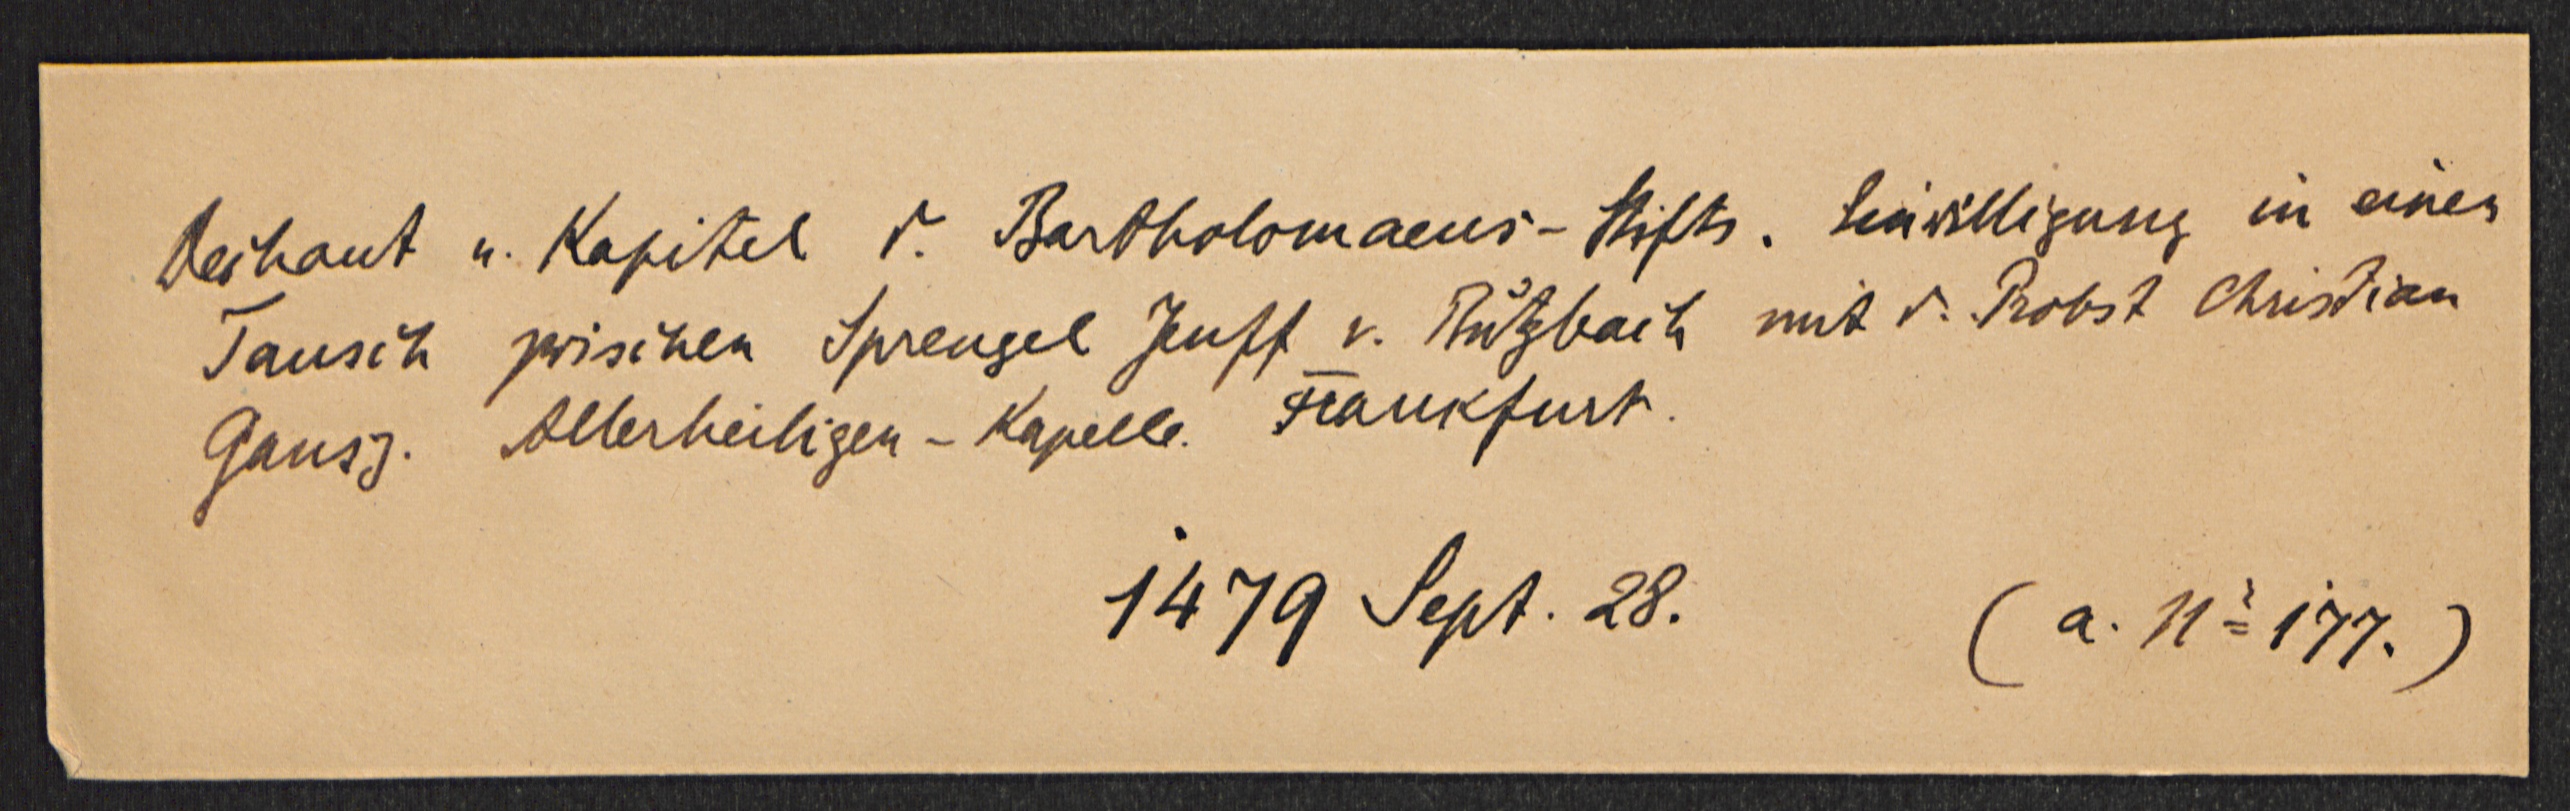 Dechant u. Kapitel d. Bartholomaeus-Stifts. Einwilligung in einen
Tausch zwischen Sprengel v. mit d. Probst Christian
Allerheiligen-Kapelle. Frankfurt.
1479 Sept. 28.
(a. No 177.)